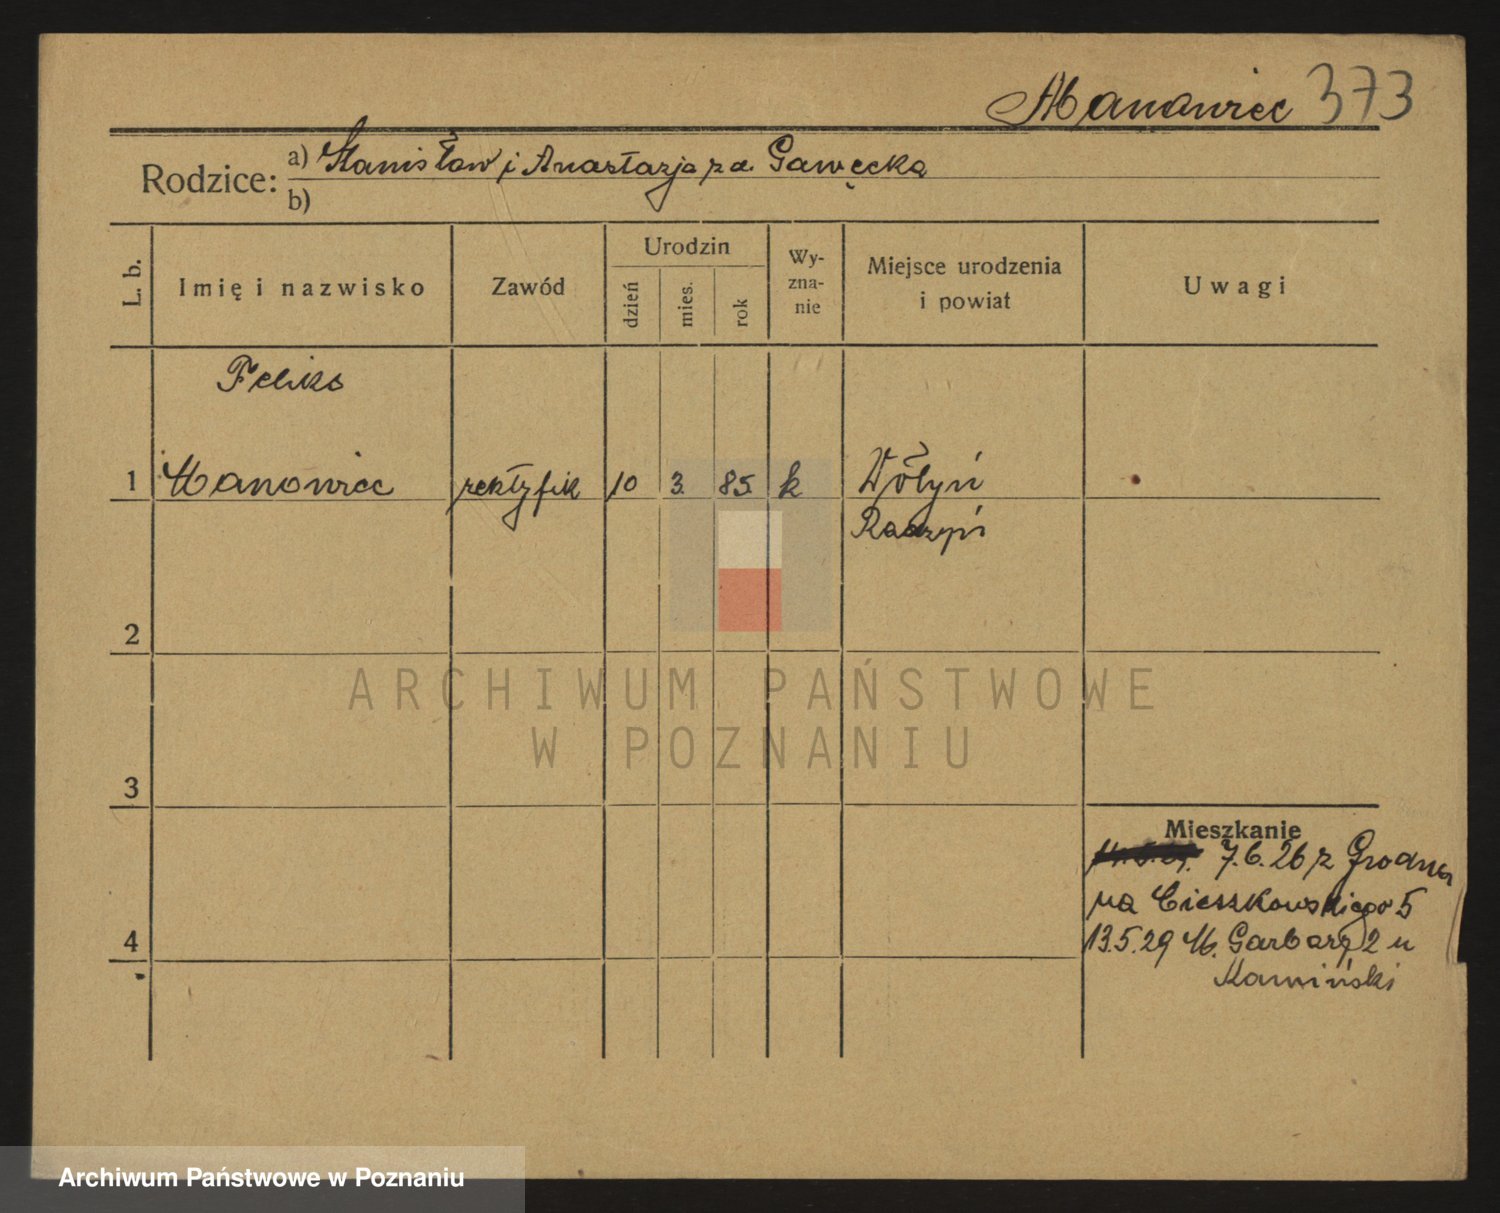 Manowiec 373
Rodzice: a) Stanisław i Anastazja z d. Gawęcka
b)
L. b. Imię i nazwisko Zawód Urodzin dzień mies. rok Wy-zna-nie Miejsce urodzenia i powiat Uwagi
Feliks
1 Manowiec rektyfik 10 3. 85. k Wołyń
Radzyń
2
3
Mieszkanie
7.6.26 z Grodna
na Cieszkowskiego 5
4 13.5.29 M. Garbary 2 u
Kamiński
ARCHIWUM PAŃSTWOWE
W POZNANIU
Archiwum Państwowe w Poznaniu